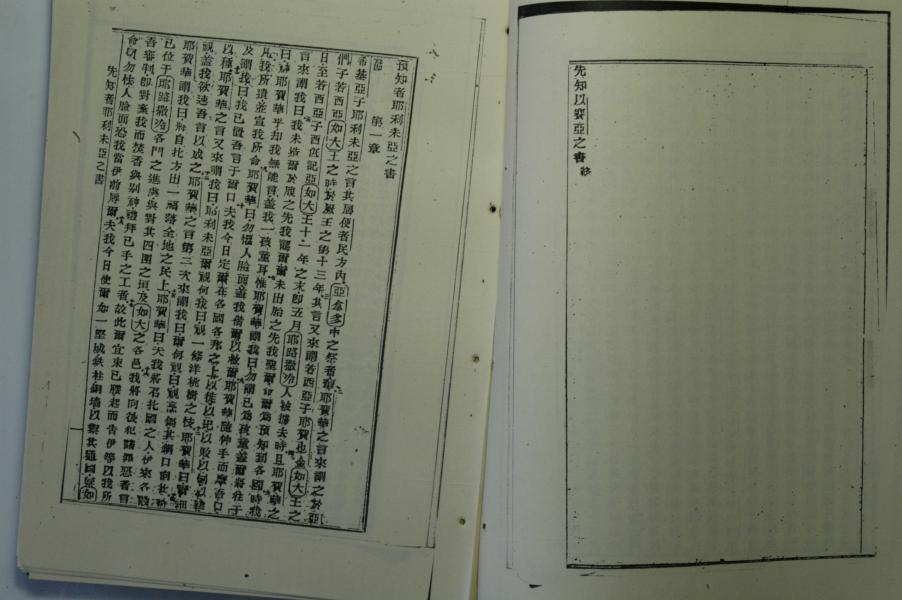 先知以賽亞之書 終
預知者耶利未亞之書
第一章
希基亞子耶利未亞之言其屬便者民方內亞拿多中之祭者輩耶賀華之言來謂之於亞
們子若西亞如大王之時於厥王之第十三年其言又來謂若西亞子耶賀也金如大王之
日至若西亞子西底記亞如大王十一年之末即五月耶路撒冷人被擄去時且耶賀華之
言來謂我曰我未搆爾於腹之先我認爾爾未出胎之先我聖爾命爾為預知到各國時我
曰耶賀華乎却我無能言蓋我一孩童耳惟耶賀華謂我曰勿謂已為孩童蓋爾將往于
凡我所遣並宣我所命耶賀華曰勿懼人臉面蓋我偕爾以救爾耶賀華隨伸手而摩吾口
及謂我曰我已置吾言于爾口夫我今日定爾在各國各邦之上以拔以圮以敗以倒以建
以種耶賀華之言又來謂我曰耶利未亞爾視何我曰視一條洋桃樹之枝耶賀華曰爾細
視蓋我欲速吾言以成之耶賀華之言第二次來謂我曰爾何視曰視蒸鍋其鍋口向北時
耶賀華謂我曰將自北方出一禍落全地之民上耶賀華曰夫我將召北國之人伊來各設
已位于耶路撒冷各門之進處與對其四圍之垣及如大之各邑我將向彼犯諸罪惡者言
吾審判即對棄我而焚香與別神禮拜已手之工者故此爾宜束已腰起而告伊等以我所
命爾勿怯人臉面恐我當伊前辱爾夫我今日使爾如一堅城鉄柱銅墻以禦其通國並如
先知者耶利未亞之書